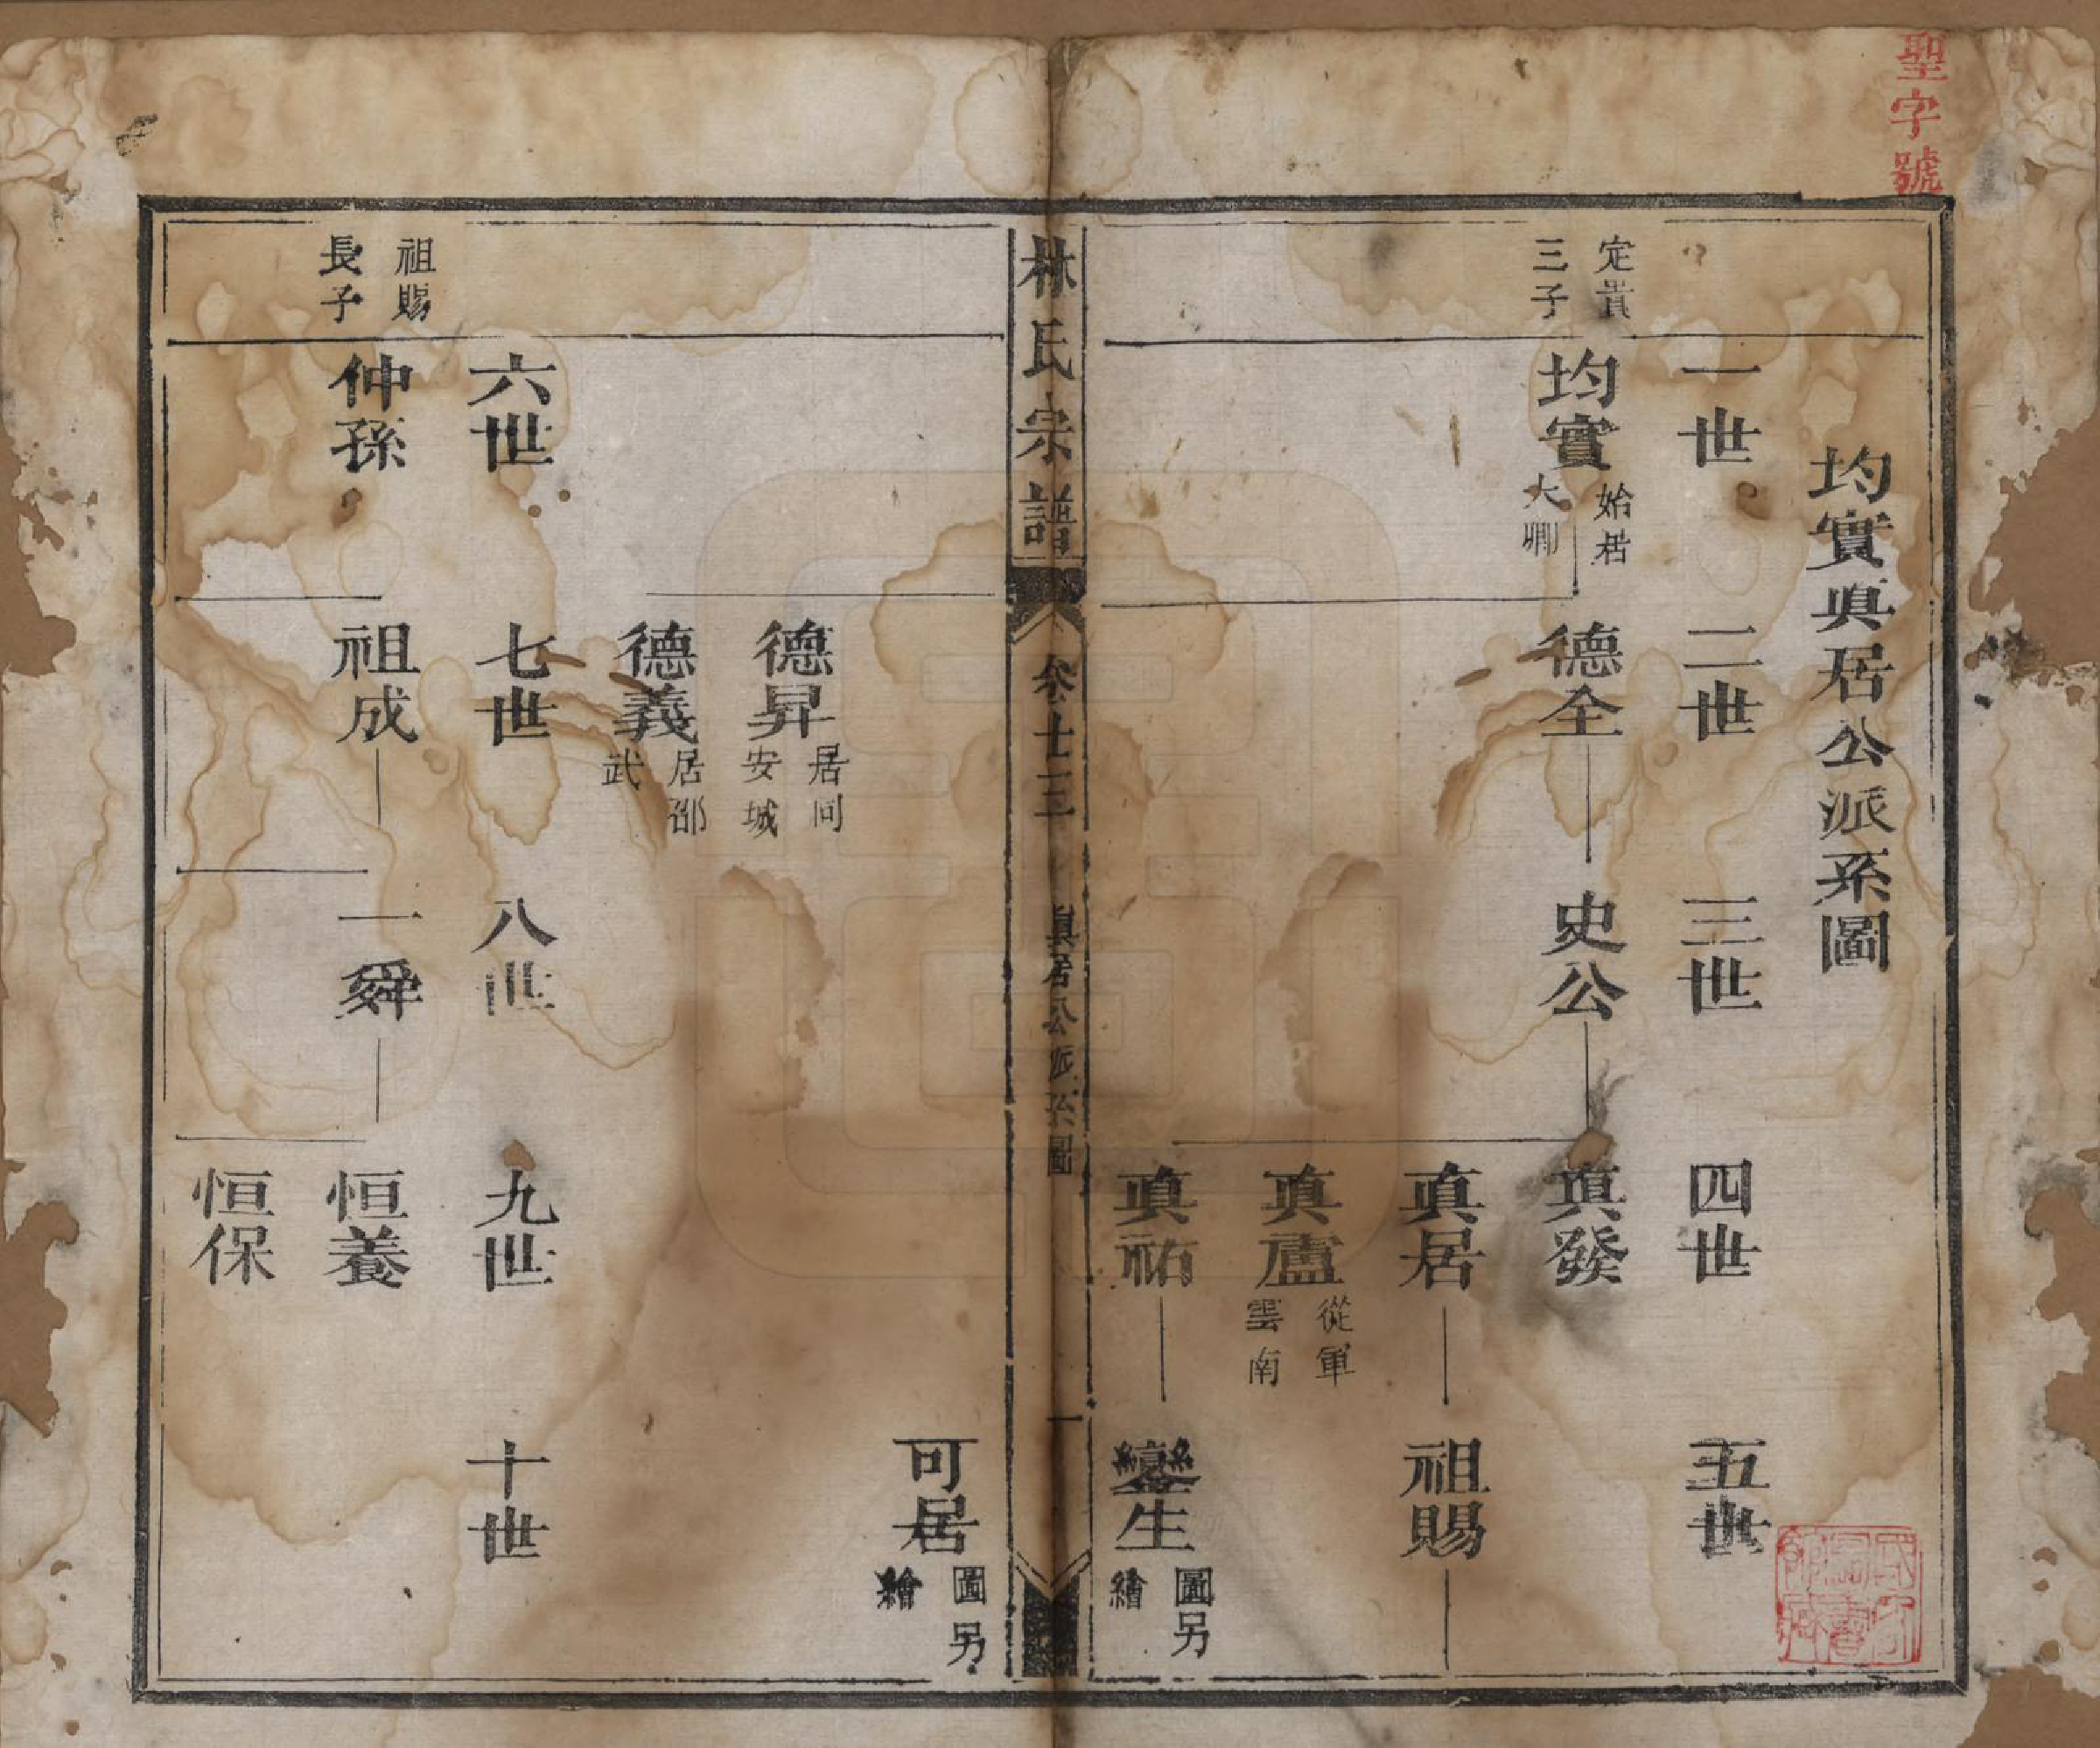 聖字號
均實真居公派系圖
一世
二世
三世
四世
五世
定貴
三子
均實
始居
大鄉
德全
史公
真發
真居
祖賜
真盧
從軍
雲南
真祐
鑾生
圖另
繪
林氏宗譜
卷十三
真居公派系圖
一
可居
圖另
繪
德昇
居同
安城
德義
居邵
武
六世
七世
八世
九世
十世
祖賜
長子
仲孫
祖成
一舜
恒養
恒保